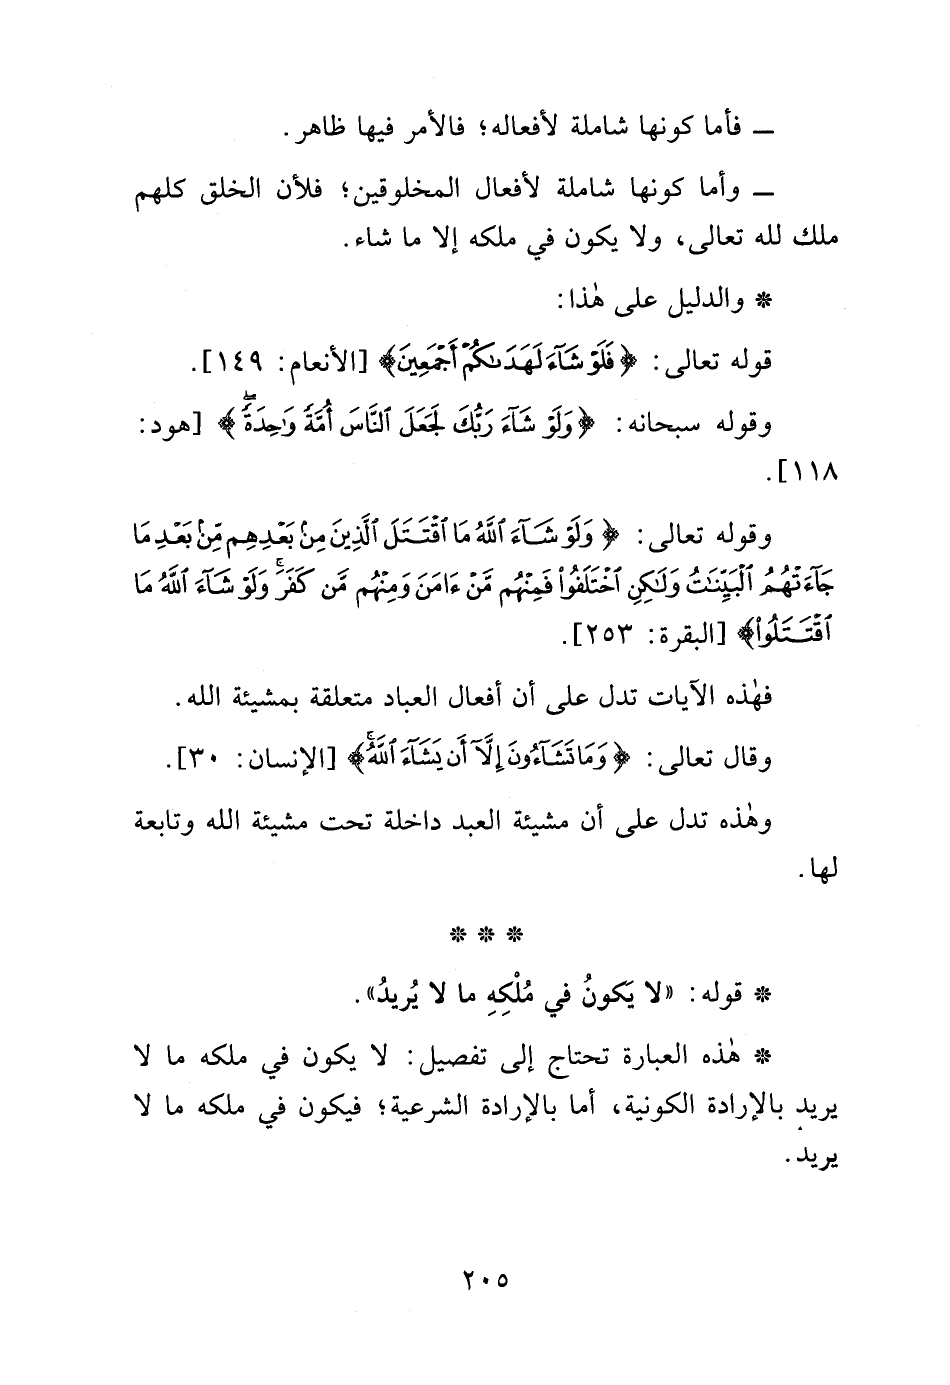 ــ فأما كونها شاملة لأفعاله؛ فالأمر فيها ظاهر.
ــ وأما كونها شاملة لأفعال المخلوقين؛ فلأن الخلق كلهم
ملك لله تعالى، ولا يكون في ملكه إلا ما شاء.
* والدليل على هٰذا:
قوله تعالى: ﴿فَلَوْ شَآءَ لَهَدَىٰكُمْ أَجْمَعِينَ﴾ [الأنعام: ١٤٩].
وقوله سبحانه: ﴿وَلَوْ شَآءَ رَبُّكَ لَجَعَلَ ٱلنَّاسَ أُمَّةً وَٰحِدَةً ۖ﴾ [هود:
١١٨].
وقوله تعالى: ﴿وَلَوْ شَآءَ ٱللَّهُ مَا ٱقْتَتَلَ ٱلَّذِينَ مِنۢ بَعْدِهِم مِّنۢ بَعْدِ مَا
جَآءَتْهُمُ ٱلْبَيِّنَٰتُ وَلَٰكِنِ ٱخْتَلَفُوا۟ فَمِنْهُم مَّنْ ءَامَنَ وَمِنْهُم مَّن كَفَرَ ۚ وَلَوْ شَآءَ ٱللَّهُ مَا
ٱقْتَتَلُوا۟﴾ [البقرة: ٢٥٣].
فهٰذه الآيات تدل على أن أفعال العباد متعلقة بمشيئة الله.
وقال تعالى: ﴿وَمَا تَشَآءُونَ إِلَّآ أَن يَشَآءَ ٱللَّهُ ۚ﴾ [الإنسان: ٣٠].
وهٰذه تدل على أن مشيئة العبد داخلة تحت مشيئة الله وتابعة
لها.
* * *
* قوله: «لا يَكونُ في مُلْكِهِ ما لا يُريدُ».
* هٰذه العبارة تحتاج إلى تفصيل: لا يكون في ملكه ما لا
يريد بالإرادة الكونية، أما بالإرادة الشرعية؛ فيكون في ملكه ما لا
يريد.
٢٠٥